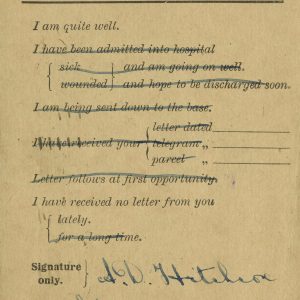 I am quite well.
I have been admitted into hospital
sick and am going on well.
wounded and hope to be discharged soon.
I am being sent down to the base.
letter dated
I have received your telegram „
parcel „
Letter follows at first opportunity.
I have received no letter from you
lately.
for a long time.
Signature
only.